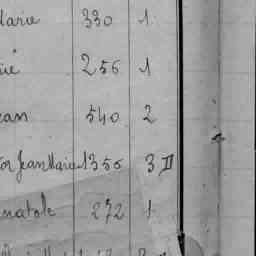 larie 330 1
rie 256 1
ean 540 2
or Jean Marie 1356 3 II
natole 272 1